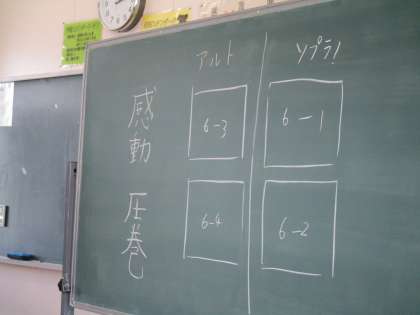 アルト ソプラ!
感動 6-3 6-1
圧巻 6-4 6-2